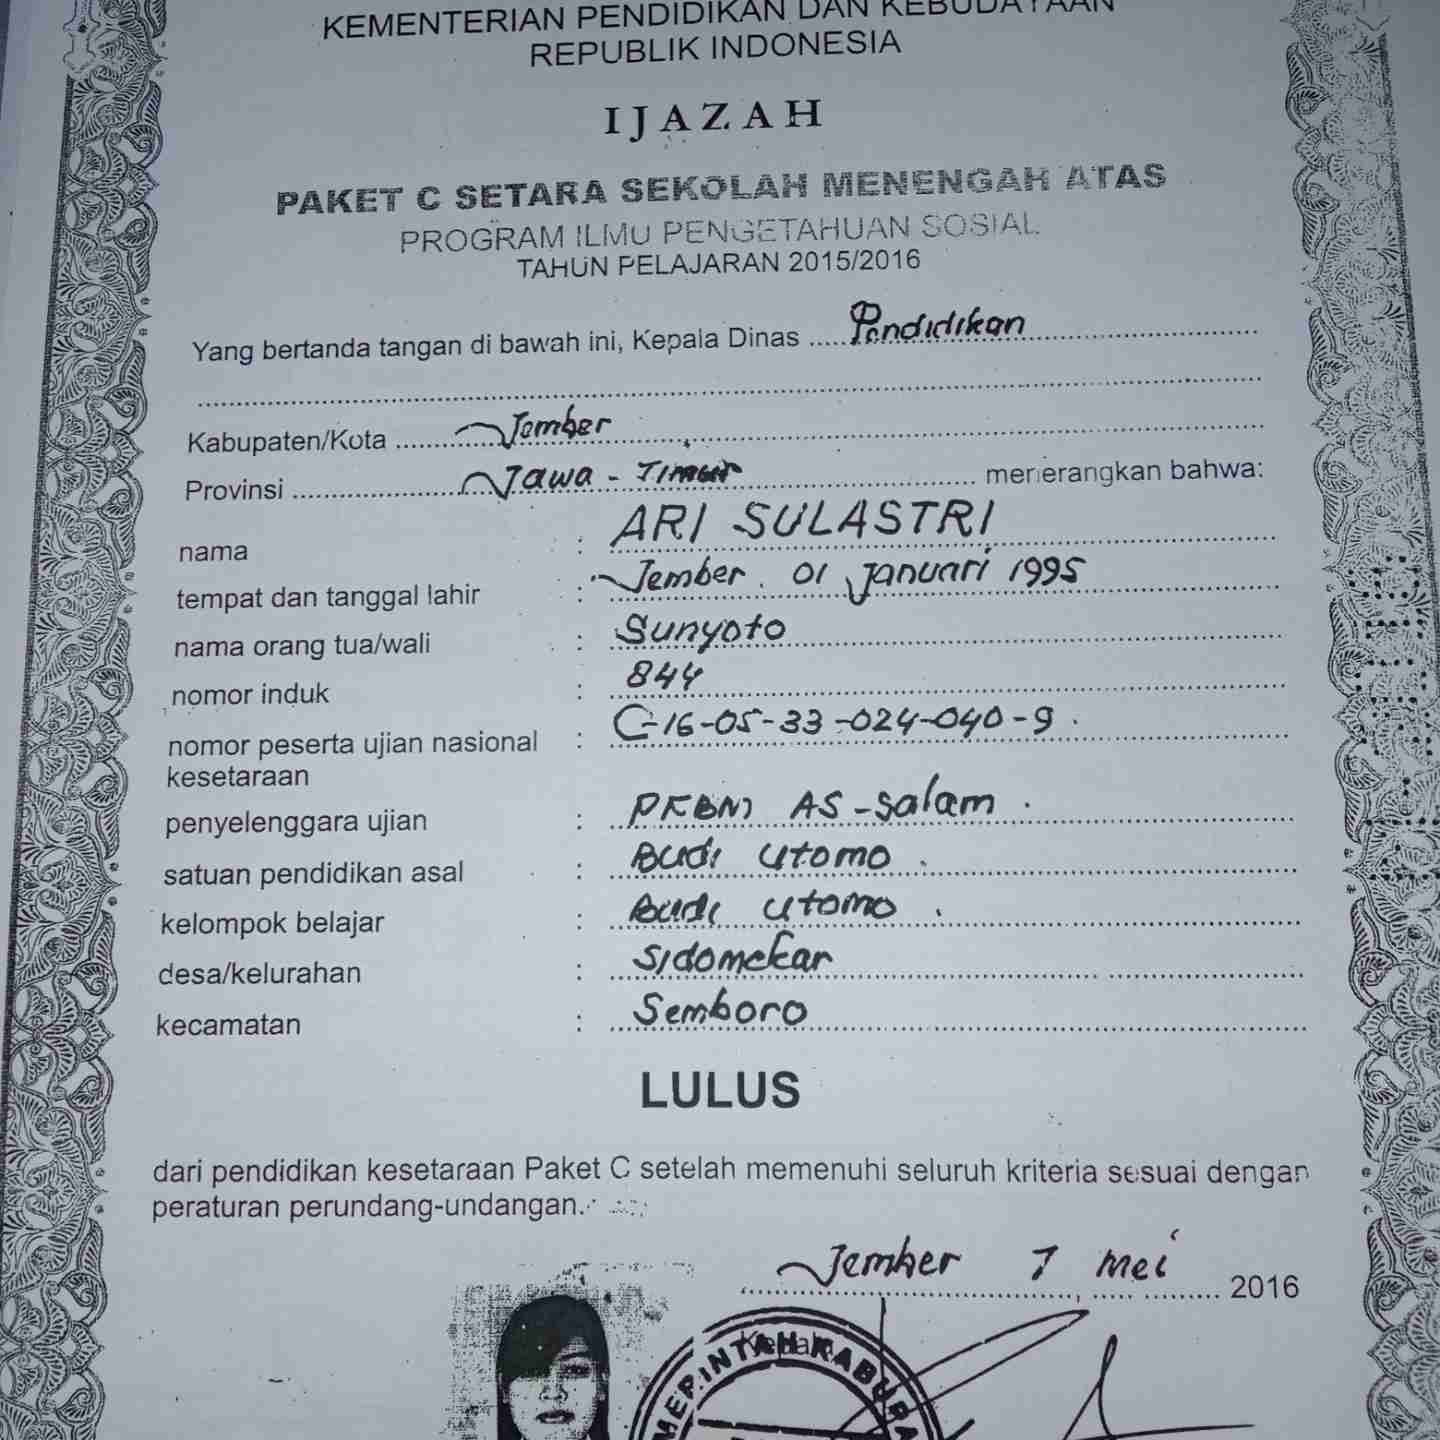 KEMENTERIAN PENDIDIKAN DAN KEBUDAYAAN
REPUBLIK INDONESIA
IJAZAH
PAKET C SETARA SEKOLAH MENENGAH ATAS
PROGRAM ILMU PENGETAHUAN SOSIAL
TAHUN PELAJARAN 2015/2016
Yang bertanda tangan di bawah ini, Kepala Dinas ..... Pendidikan
Kabupaten/Kota ..... Jember
Provinsi ..... Jawa - Timur ..... menerangkan bahwa:
nama : ARI SULASTRI
tempat dan tanggal lahir : Jember, 01 Januari 1995
nama orang tua/wali : Sunyoto
nomor induk : 844
nomor peserta ujian nasional : C-16-05-33-024-040-9.
kesetaraan
penyelenggara ujian : PKBM AS-Salam.
satuan pendidikan asal : Budi Utomo.
kelompok belajar : Budi Utomo.
desa/kelurahan : Sidomekar
kecamatan : Semboro
LULUS
dari pendidikan kesetaraan Paket C setelah memenuhi seluruh kriteria sesuai dengan
peraturan perundang-undangan.
Jember, 7 Mei 2016
Kepala